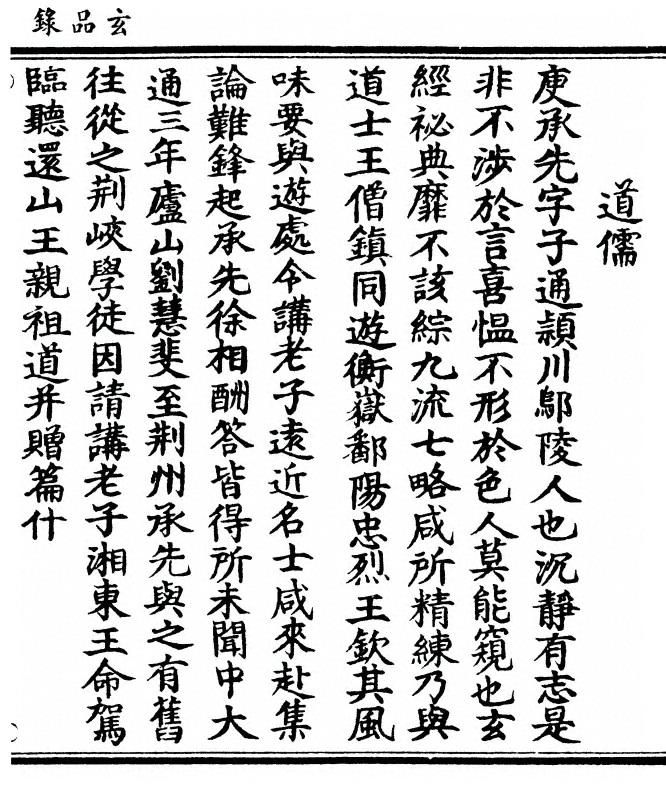 玄品錄
道儒
庾承先字子通潁川鄢陵人也沉靜有志是
非不涉於言喜愠不形於色人莫能窺也玄
經祕典靡不該綜九流七略咸所精練乃與
道士王僧鎮同遊衡嶽鄱陽忠烈王欽其風
味要與遊處令講老子遠近名士咸來赴集
論難鋒起承先徐相酬答皆得所未聞中大
通三年廬山劉慧斐至荆州承先與之有舊
往從之荆峽學徒因請講老子湘東王命駕
臨聽還山王親祖道并贈篇什